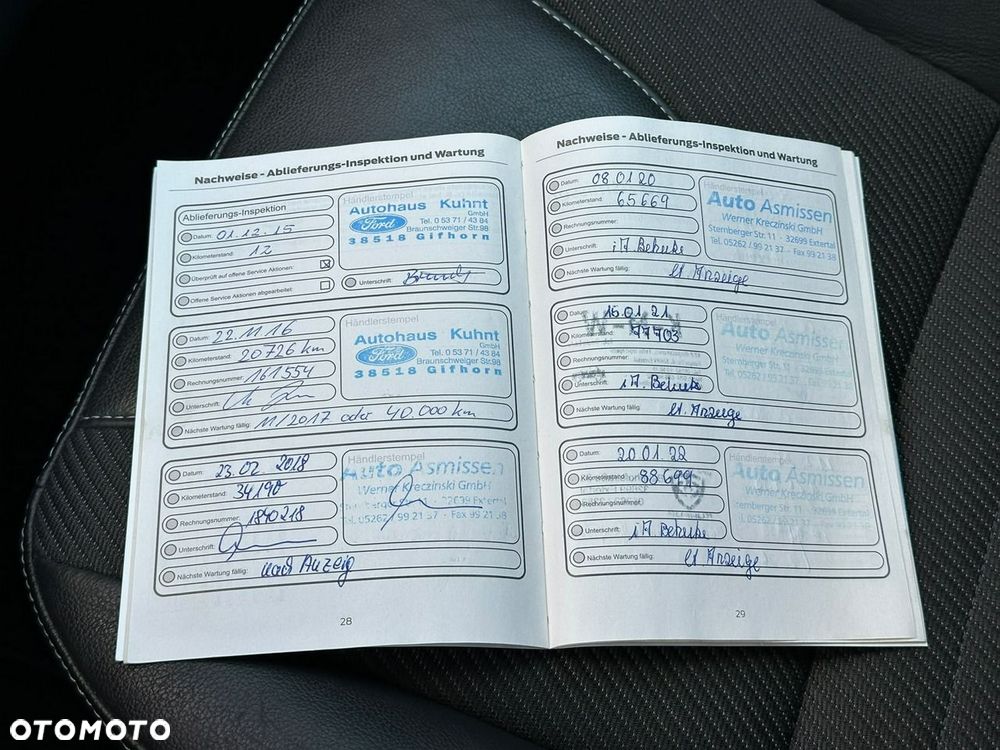 Nachweise - Ablieferungs-Inspektion und Wartung
Ablieferungs-Inspektion
Datum: 01.12.15
Kilometerstand: 12
Überprüft auf offene Service Aktionen:
Offene Service Aktionen abgearbeitet:
Autohaus Kuhnt
GmbH
Ford
Tel. 0 53 71 / 43 84
Braunschweiger Str.98
38518 Gifhorn
Unterschrift:
Datum: 22.11.16
Kilometerstand: 20726 km
Rechnungsnummer: 161554
Unterschrift:
Nächste Wartung fällig: 11/2017 oder 40.000 km
Händlerstempel
Autohaus Kuhnt
GmbH
Ford
Tel. 0 53 71 / 43 84
Braunschweiger Str.98
38518 Gifhorn
Datum: 23.02.2018
Kilometerstand: 34190
Rechnungsnummer: 1840218
Unterschrift:
Nächste Wartung fällig: nach Anzeig
Händlerstempel
Auto Asmissen
Werner Kreczinski GmbH
32699 Extertal
Tel. 05262 / 99 21 37 - Fax 99 21 38
28
Nachweise - Ablieferungs-Inspektion und Wartung
Datum: 08.01.20
Kilometerstand: 65669
Rechnungsnummer:
Unterschrift:
Nächste Wartung fällig: lt. Anzeige
Händlerstempel
Auto Asmissen
Werner Kreczinski GmbH
Sternberger Str. 11 - 32699 Extertal
Tel. 05262 / 99 21 37 - Fax 99 21 38
Datum: 15.01.21
Kilometerstand: 77703
Rechnungsnummer:
Unterschrift:
Nächste Wartung fällig: lt. Anzeige
Händlerstempel
Auto Asmissen
Werner Kreczinski GmbH
Sternberger Str. 11 - 32699 Extertal
Tel. 05262 / 99 21 37 - Fax 99 21 38
Datum: 20.01.22
Kilometerstand: 88699
Rechnungsnummer:
Unterschrift:
Nächste Wartung fällig: lt. Anzeige
Händlerstempel
Auto Asmissen
Werner Kreczinski GmbH
Sternberger Str. 11 - 32699 Extertal
Tel. 05262 / 99 21 37 - Fax 99 21 38
29
OTOMOTO